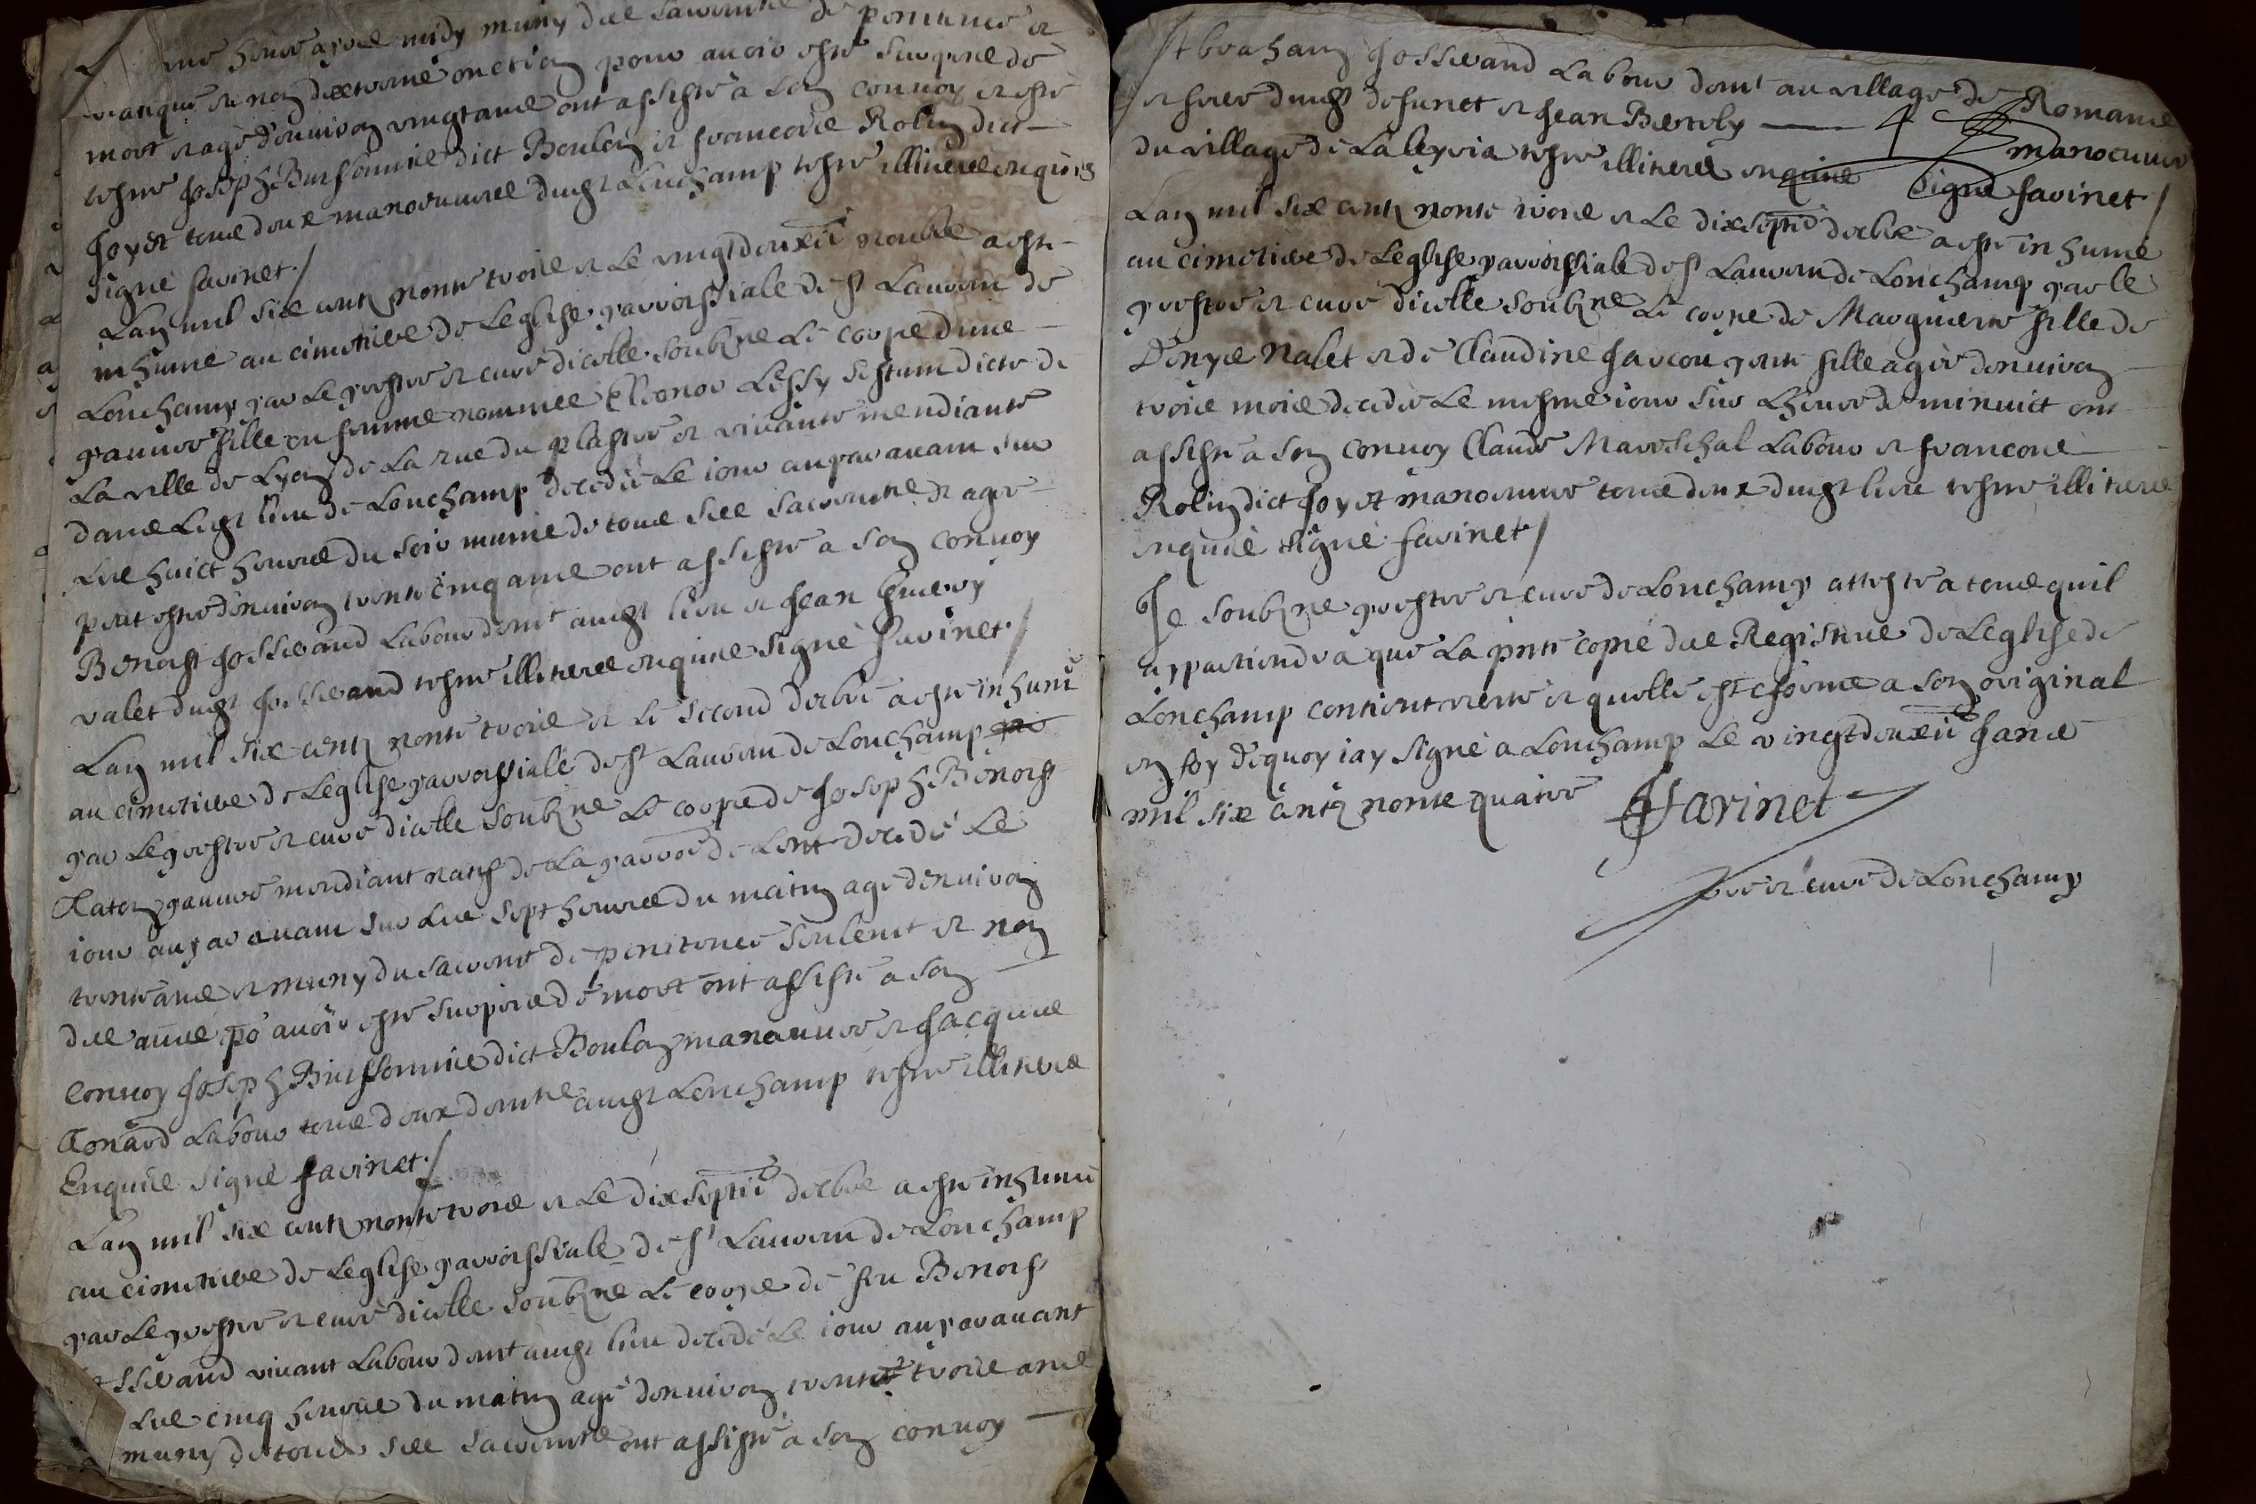 une heure apres midy muny des sacremts de penitence et
viatique et non dextreme onction pour avoir esté surpris de
mort et agé denuiron vingt ans ont assisté a son conuoy et esté
tesmo Joseph Buissonnie dict Boulon et francois Rolin dict
Joyet tous deux manoeuures dudt Lonchamp tesmo illiteres enquis
signé favinet /
Lan mil six centz nonte trois et le vingtdeuxie noubre a esté
inhumé au cimetiere de Leglise parroissiale de st Laurens de
Lonchamp par le prestre et curé dicelle soubzne Le corps dune
pauure fille ou femme nommée Elleonor Lessy se disant de
la ville de Lyon de la rue du plastre et viuante mendiante
dans Ledt lieu de Lonchamp decedée Le iour auparauant sur
Les huict heures du soir munie de tous ses sacremts et agée
peut estre denuiron trente cinq ans ont assisté a son conuoy
Benoist Josserand Labour demt audt lieu et Jean
valet dudt Josserand tesmo illiteres enquis signé favinet /
Lan mil six centz nonte trois et Le second decbre a esté inhumé
au cimetiere de Leglise parroissiale de st Laurens de Lonchamp
par Le prestre et curé dicelle soubzne Le corps de Joseph Benoist
pauure mendiant natif de La parroe de Lent decedé Le
iour auparauant sur Les sept heures du matin agé denuiron
trente ans et muny du sacremt de penitence seulemt et non
des aues po auoir esté surpris de mort ont assisté a son
conuoy Joseph Buissonnie dict Boulon manouure et Jacques
Conard Labour tous deux demts audt Lonchamp tesmo illiteres
Enquis signé favinet /
Lan mil six centz nonte trois et Le dixseptie decbre a esté inhumé
au cimetiere de Leglise parroissiale de st Laurens de Lonchamp
par Le prestre et curé dicelle soubzné Le corps de feu Benoist
Josserand viuant Labour demt audt lieu decedé Le iour auparauant
Les cinq heures du matin agé denuiron trente trois ans
muny de tous ses sacremts ont assisté a son conuoy
Abraham Josserand Labour demt au village de Romans
et frere dudt defunct et Jean Brevly manoeuure
du village de La leyria tesmo illiteres enquis signé favinet /
Lan mil six centz nonte trois et Le dixseptie decbre a esté inhumé
au cimetiere de Leglise parroissiale de st Laurens de Lonchamp par le
prestre et curé dicelle soubzne Le corps de Marguerite fille de
Denys Nalet et de Claudine Jarcou petite fille agée denuiron
trois mois decedée Le mesme iour sur Lheure de minuict ont
assisté a son conuoy Claude Mareschal Labour et francois
Rolin dict Joyet manoeuure tous deux dudt lieu tesmo illiteres
enquis signé favinet /
Je soubzne prestre et curé de Lonchamp atteste a tous quil
appartiendra que La pnte copie des Registres de Leglise de
Lonchamp contient verité et quelle est cforme a son original
en foy dequoy iay signé a Lonchamp Le vingtdeuxie Janer
mil six centz nonte quatre Favinet
pre et curé de Lonchamp